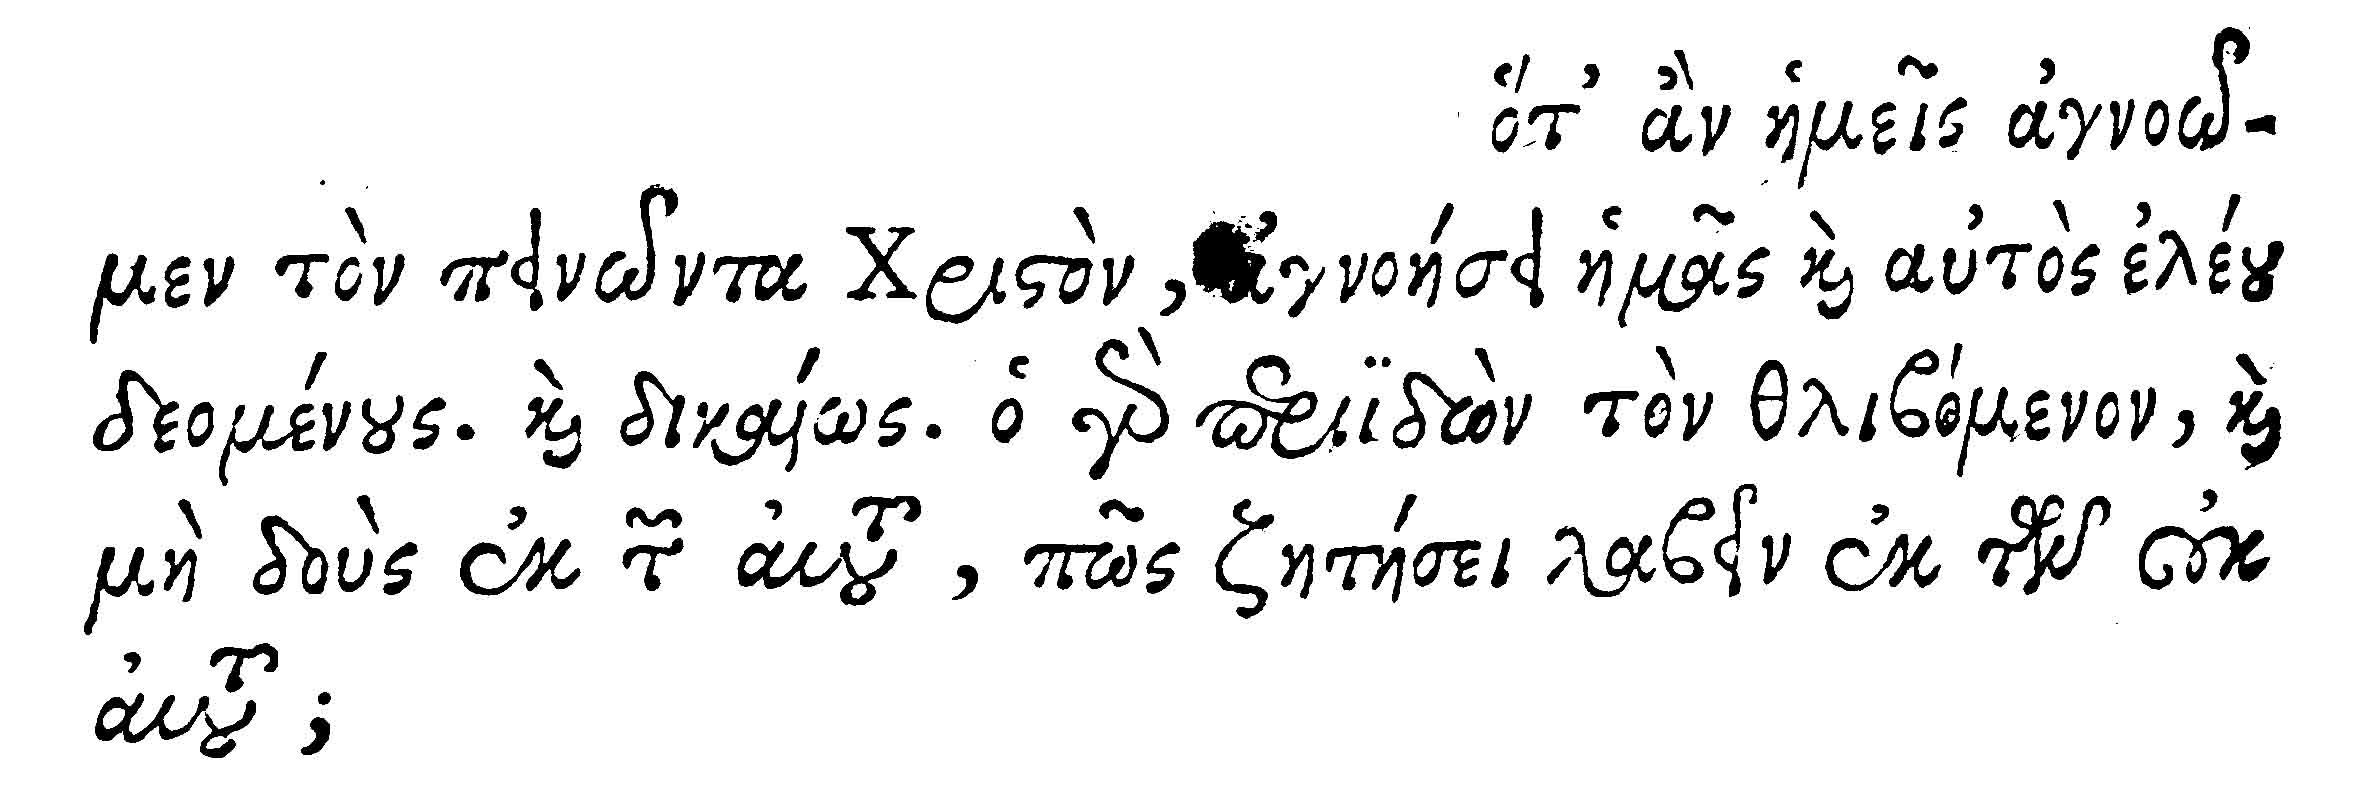 ὅτ’ ἂν ἡμεῖς ἀγνοῶ-
μεν τὸν πεινῶντα Χριστὸν, ἀγνοήσει ἡμᾶς καὶ αὐτὸς ἐλέου
δεομένους. καὶ δικαίως. ὁ γὰρ περιϊδὼν τὸν θλιβόμενον, καὶ
μὴ δοὺς ἐκ τῶν αὐτοῦ, πῶς ζητήσει λαβεῖν ἐκ τῶν οὐκ
αὐτοῦ;